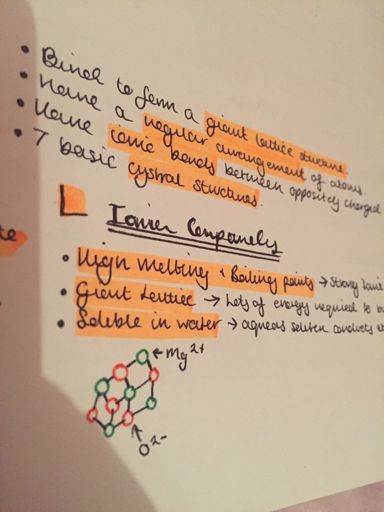 • Bind to form a giant lattice structure.
• Have a regular arrangement of atoms.
• Have ionic bonds between oppositely charged
• 7 basic cystral structures.
Ionic Compounds
• High Melting + Boiling points → strong ionic
• Giant Lattice → Lots of energy required to
• Soluble in water → aqueous solution conducts
Mg2+
O2-